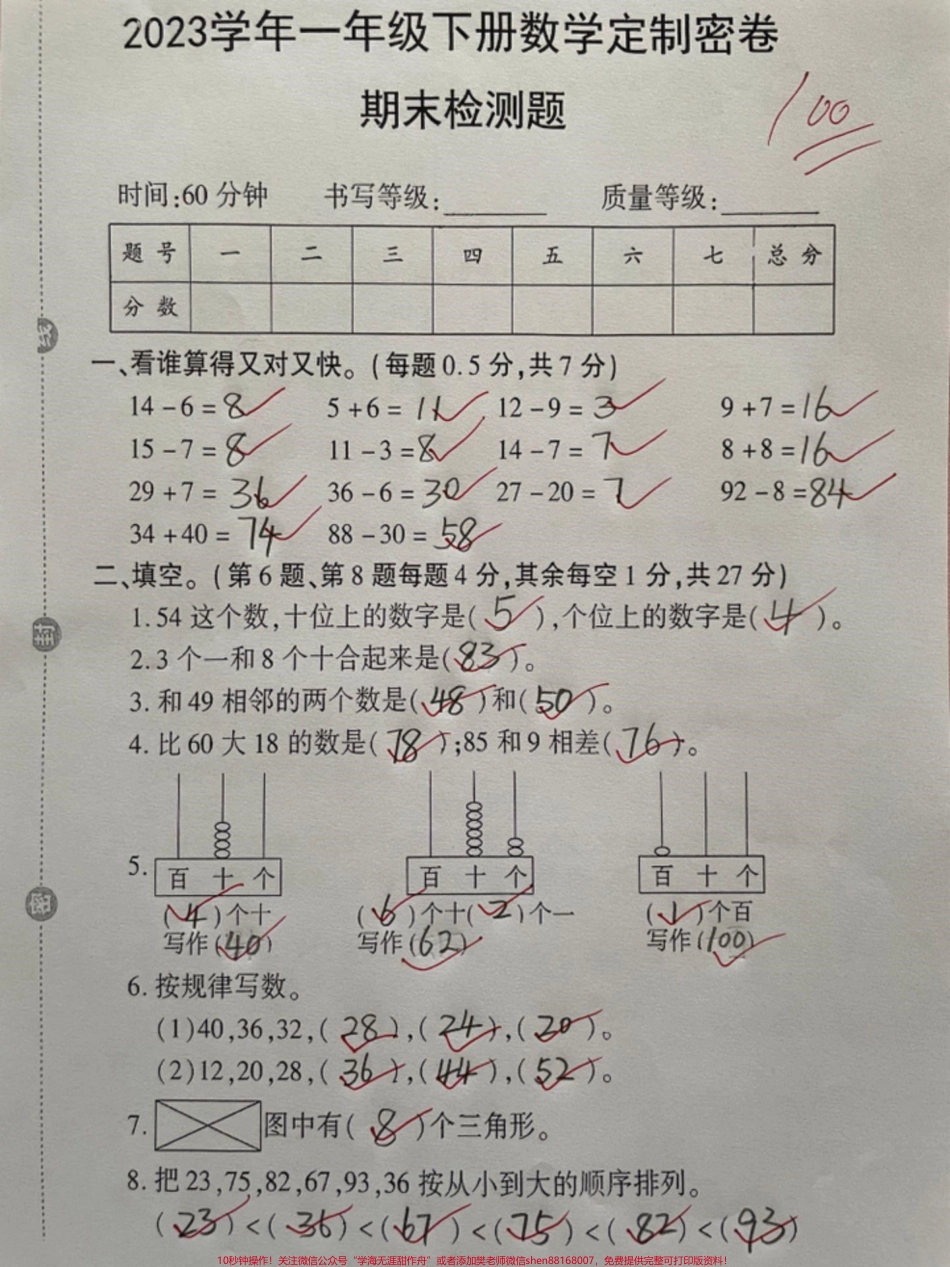 2023学年一年级下册数学定制密卷
期末检测题
100
时间:60 分钟 书写等级: 质量等级:
题号 一 二 三 四 五 六 七 总分
分数
一、看谁算得又对又快。(每题0.5分,共7分)
14-6=8 5+6=11 12-9=3 9+7=16
15-7=8 11-3=8 14-7=7 8+8=16
29+7=36 36-6=30 27-20=7 92-8=84
34+40=74 88-30=58
二、填空。(第6题、第8题每题4分,其余每空1分,共27分)
1.54这个数,十位上的数字是(5),个位上的数字是(4)。
2.3个一和8个十合起来是(83)。
3.和49相邻的两个数是(48)和(50)。
4.比60大18的数是(78);85和9相差(76)。
5. 百 十 个 百 十 个 百 十 个
(4)个十 (6)个十(2)个一 (1)个百
写作(40) 写作(62) 写作(100)
6.按规律写数。
(1)40,36,32,(28),(24),(20)。
(2)12,20,28,(36),(44),(52)。
7. 图中有(8)个三角形。
8.把23,75,82,67,93,36按从小到大的顺序排列。
(23)<(36)<(67)<(75)<(82)<(93)
线
封
密
10秒钟操作!关注微信公众号“学海无涯甜作舟”或者添加樊老师微信shen88168007,免费提供完整可打印版资料!